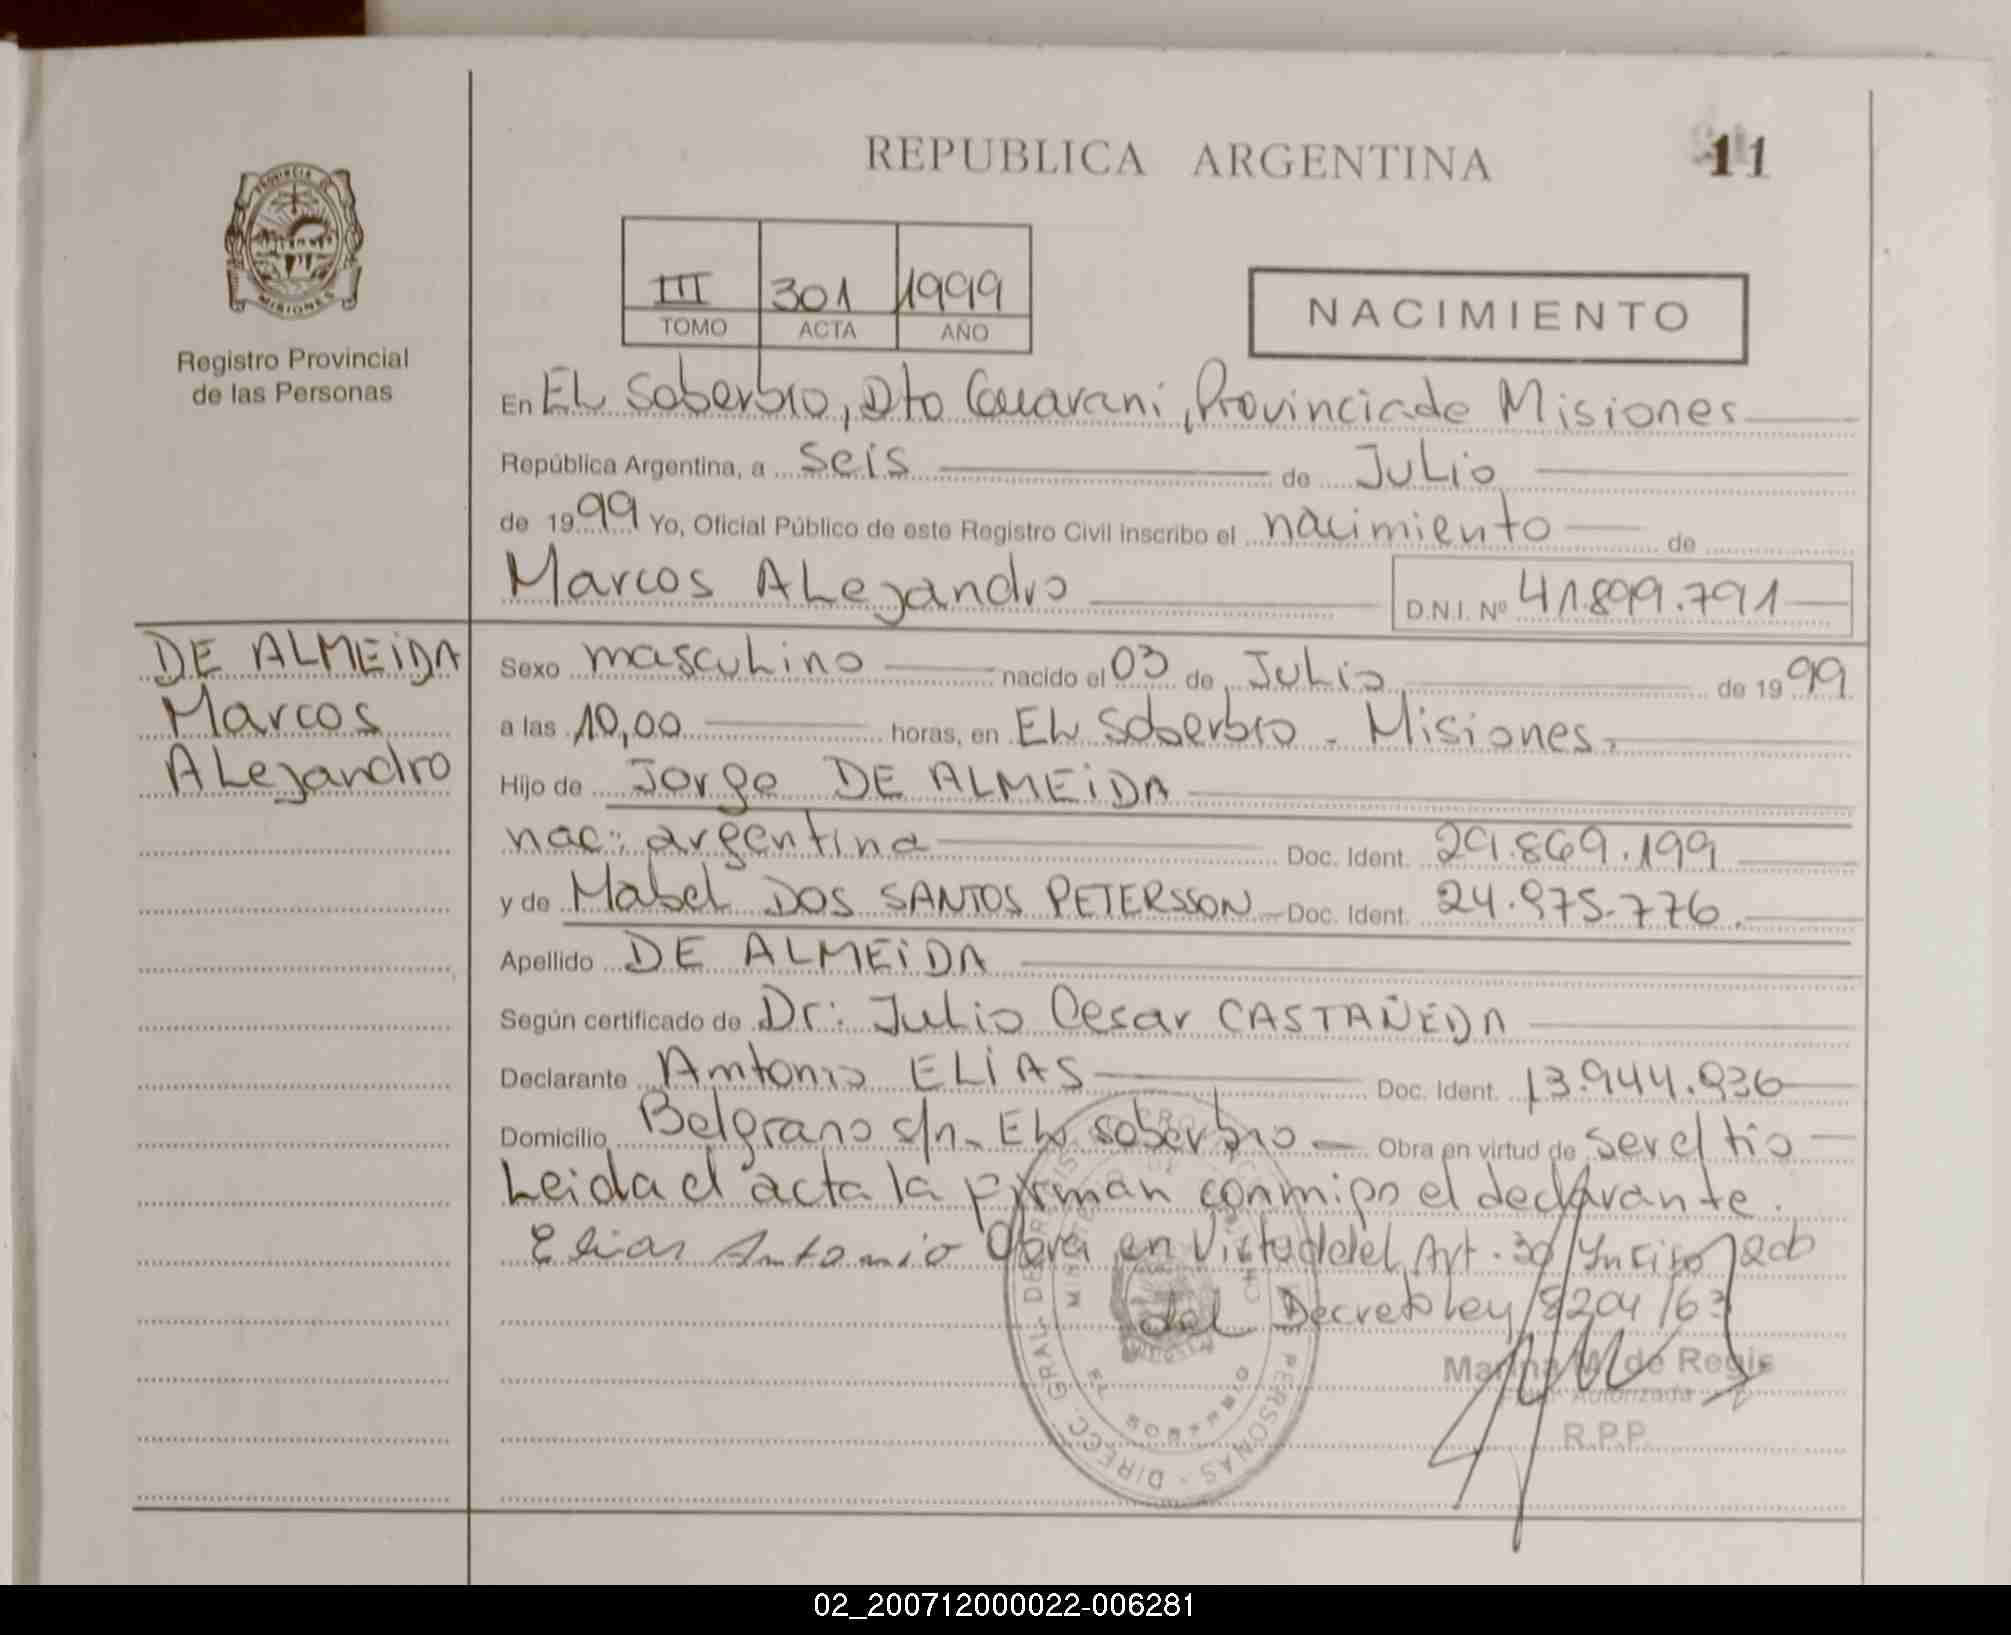 REPUBLICA ARGENTINA
11
PROVINCIA DE
MISIONES
Registro Provincial
de las Personas
III 301 1999
TOMO ACTA AÑO
NACIMIENTO
En EL Soberbio, Dto Guarani, Provincia de Misiones
República Argentina, a seis de Julio
de 1999 Yo, Oficial Público de este Registro Civil inscribo el nacimiento de
Marcos ALejandro D.N.I. Nº 41.899.791
DE ALMEIDA
Marcos
ALejandro
Sexo mascuLino nacido el 03 de JuLio de 1999
a las 10,00 horas, en EL Soberbio - Misiones.
Hijo de Jorge DE ALMEIDA
nac: argentina Doc. Ident. 29.869.199
y de Mabel DOS SANTOS PETERSSON Doc. Ident. 24.975.776.
Apellido DE ALMEIDA
Según certificado de Dr: Julio Cesar CASTAÑEDA
Declarante Antonio ELIAS Doc. Ident. 13.944.936
Domicilio Belgrano s/n. EL soberbio Obra en virtud de ser el tio
Leida el acta la firman conmigo el declarante.
Elias Antonio Obra en Virtud del Art. 30 Inciso
del Decreto Ley 8204/63
Marina M. de Regis
Autorizada
R.P.P.
DIRECC. GRAL. DE PERSONAS
02_200712000022-006281